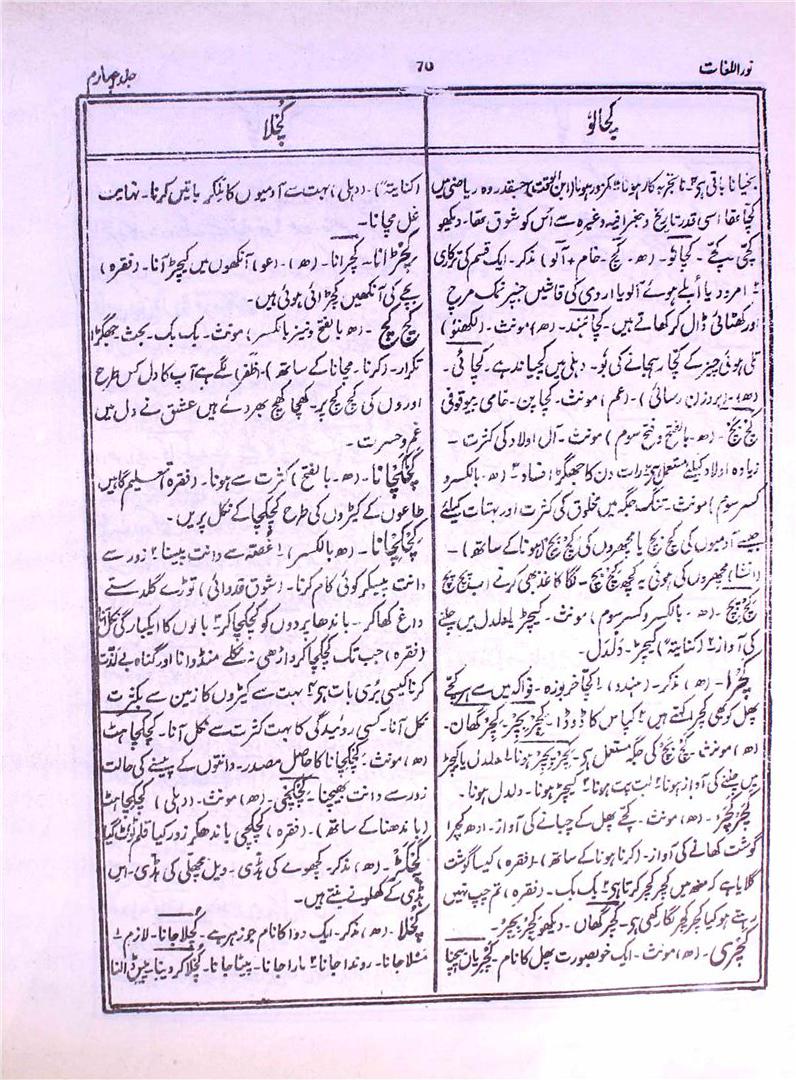 نور اللغات
70
جلد چہارم
کچالو
کچلا
کچا تھا اسی قدر تاریخ و جغرافیہ وغیرہ سے اس کو شوق تھا۔ دیکھو
کچّے پکّے۔ کچالو۔ (ھ۔ کچ۔ خام + آلو) مذکر۔ ایک قسم کی ترکاری
۲ امرود یا اُبلے ہوئے آلو یا اروی کی قاشیں جنپر نمک مرچ
اور کھٹائی ڈال کر کھاتے ہیں۔ کچا ہند۔ (ھ) مونث۔ (لکھنؤ)
تلی ہوئی چیز کے کچا رہجانے کی بو۔ دہلی میں کچیاند ہے۔ کچائی۔
(ھ۔ بروزن رسائی)۔ (عم) مونث۔ کچاپن۔ خامی بیوقوفی
کچ بچ۔ (ھ۔ بالفتح و فتح سوم) مونث۔ آل اولاد کی کثرت۔
زیادہ اولاد کیلئے مستعمل ہے رات دن کا جھگڑا
کسر سوم) مونث۔ تنگ جگہ میں مخلوق کی کثرت اور بہتات کیلئے
جیسے آدمیوں کی کچ بچ یا مچھروں کی کچ بچ (ہونا کے ساتھ)۔
کچ پچ۔ (ھ۔ بالکسر و کسر سوم) مونث۔ کیچڑ یا دلدل میں چلنے
کی آواز ۲ (کنایۃً) کیچڑ۔ دلدل۔
کچرا۔ (ھ) مذکر۔ (ہندو) ۱ کچا خربوزہ۔ فواکہ میں سے ہر کچے
پھل کو بھی کچرا کہتے ہیں ۲ کپاس کا ڈوڈا۔ کچر پچر۔ کچر گھان۔
(ھ) مونث۔ کچ بچ کی جگہ مستعمل ہے۔ کچر پچر ہونا ۱ دلدل یا کیچڑ
میں چلنے کی آواز ہونا ۲ لت پت ہونا ۳ کیچڑ ہونا۔ دلدل ہونا۔
کچر کچر۔ (ھ) مونث۔ کچے پھل کے چبانے کی آواز۔ ادھ کچرا
گوشت کھانے کی آواز۔ (کرنا ہونا کے ساتھ)۔ (فقرہ) کیسا گوشت
گلایا ہے کہ منھ میں کچر کچر کرتا ہے ۲ بک بک۔ (فقرہ) تم چپ نہیں
رہتے ہو کیا کچر کچر لگا رکھی ہے۔ کچر گھان۔ دیکھو کچر پچر۔
کچری۔ (ھ) مونث۔ ایک خوبصورت پھل کا نام۔ کچریاں بیچنا
(کنایۃً)۔ (دہلی) بہت سے آدمیوں کا ملکر باتیں کرنا۔ نہایت
غل مچانا۔
کچڑانا۔ کچرانا۔ (ھ)۔ (عو) آنکھوں میں کیچڑ آنا۔ (فقرہ)
بچے کی آنکھیں کچڑائی ہوئی ہیں۔
کچ کچ۔ (ھ بالفتح و نیز بالکسر) مونث۔ بک بک۔ بحث۔ جھگڑا
تکرار۔ (کرنا۔ مچانا کے ساتھ)۔ (ظفر) لگے ہے آپ کا دل کس طرح
اوروں کی کچ کچ پر۔ کھچا کھچ بھر دئے ہیں عشق نے دل میں
غم و حسرت۔
کچکچانا۔ (ھ۔ بالفتح) کثرت سے ہونا۔ (فقرہ)
طاعون کے کیڑوں کی طرح کچکچا کے نکل پڑیں۔
کچکچانا۔ (ھ بالکسر) ۱ غصّہ سے دانت پیسنا ۲ زور سے
دانت پیسکر کوئی کام کرنا۔ (شوق قدوائی) توڑے گلدستے
داغ کھا کر۔ باندھا پردوں کو کچکچا کر ۳ بالوں کا ایکبارگی نکل آنا
(فقرہ) جب تک کچکچا کر داڑھی نہ نکلے منڈوانا اور گناہ بے لذت
کرنا کیسی بری بات ہے ۴ بہت سے کیڑوں کا زمین سے بکثرت
نکل آنا۔ کسی روئیدگی کا بہت کثرت سے نکل آنا۔ کچکچاہٹ
(ھ) مونث۔ کچکچانا کا حاصل مصدر۔ دانتوں کے پیسنے کی حالت
زور سے دانت بھینچنا۔ کچکچی۔ (ھ) مونث۔ (دہلی) کچکچاہٹ
(باندھنا کے ساتھ)۔ (فقرہ) کچکچی باندھکر زور کیا قلم ٹوٹ گیا
کچکڑ۔ (ھ) مذکر۔ کچھوے کی ہڈی۔ ویل مچھلی کی ہڈی۔ اس
ہڈی کے کھلونے بنتے ہیں۔
کچلا۔ (ھ) مذکر۔ ایک دوا کا نام جو زہر ہے۔ کچلا جانا۔ لازم ۱
مسلا جانا۔ روندا جانا ۲ مارا جانا۔ پیٹا جانا۔ کچلا کر دینا۔ پیس ڈالنا